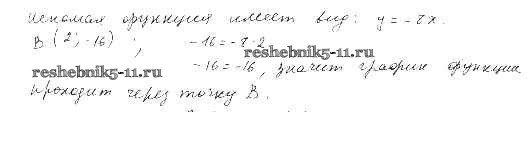 Искомая функция имеет вид: y = -8x.
B (2; -16) ; -16 = -8·2
reshebnik5-11.ru
-16 = -16, значит график функции
reshebnik5-11.ru
проходит через точку B.